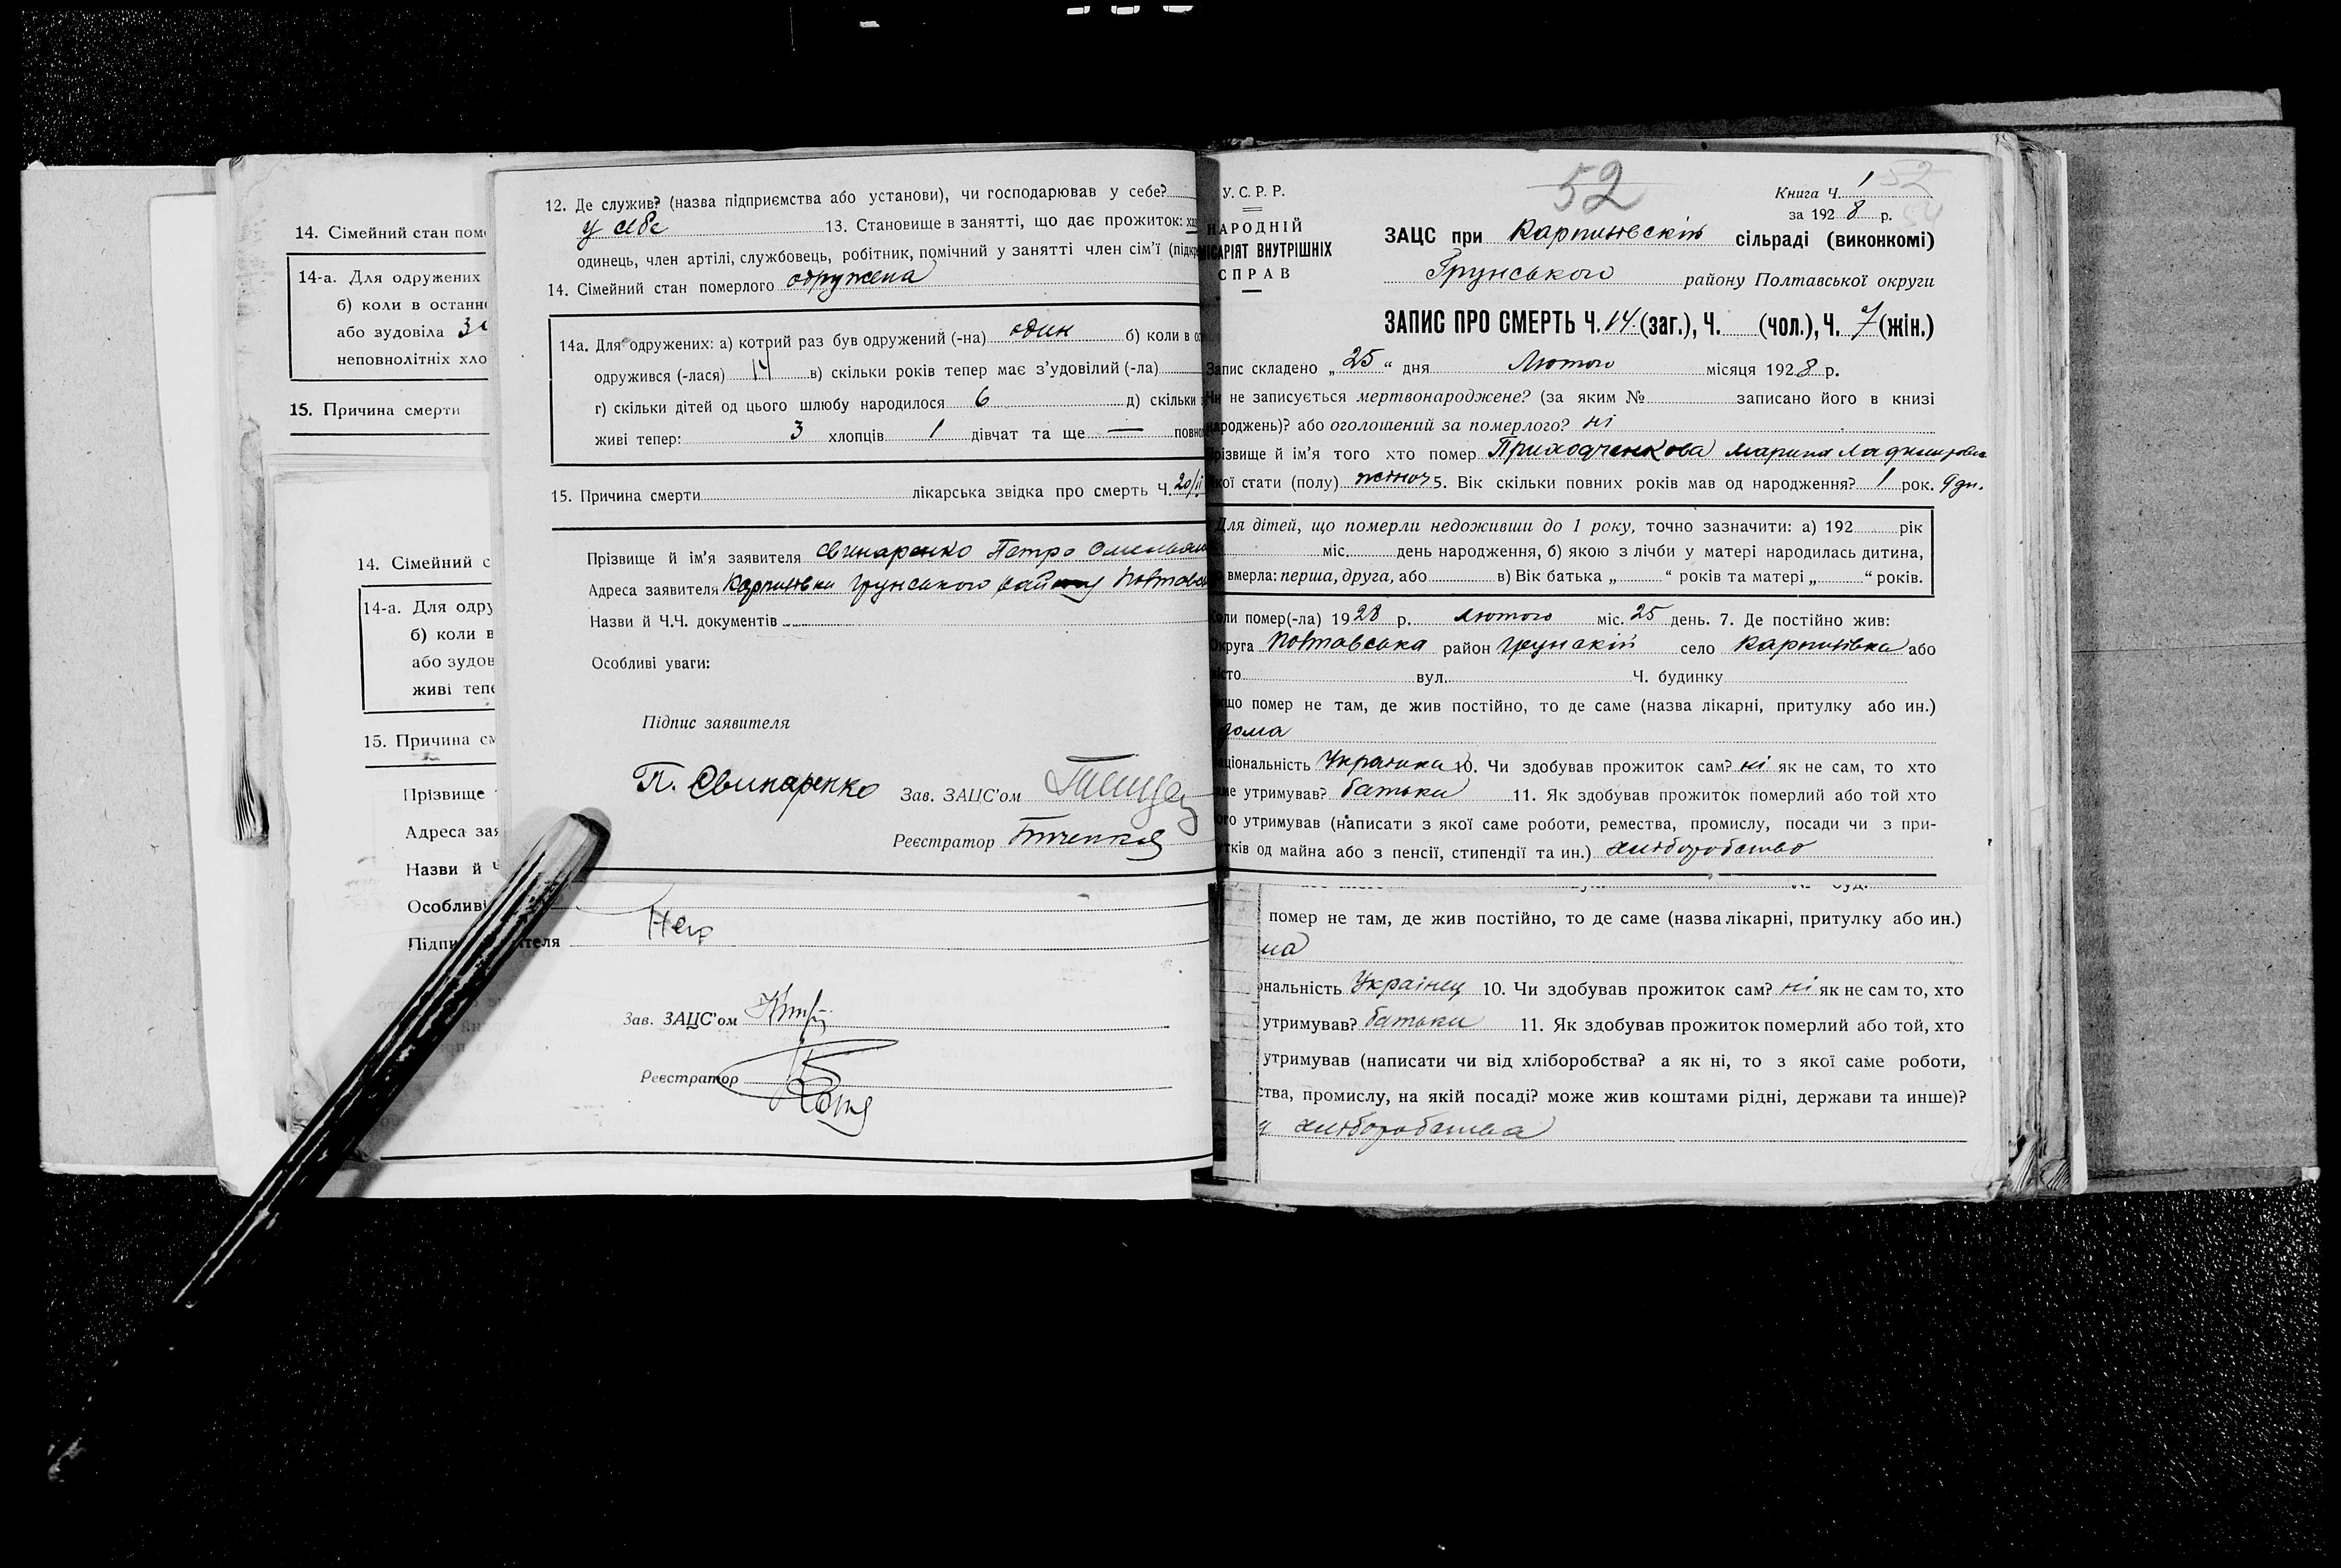 14. Сімейний стан пом
14-а. Для одружених
б) коли в останн
або зудовіла
неповнолітніх хло
15. Причина смерти
14. Сімейний с
14-а. Для одру
б) коли в
або зудов
живі тепе
15. Причина см
Прізвище
Адреса зая
Назви й Ч
Особливі
Підпи теля
12. Де служив? (назва підприємства або установи), чи господарював у себе?
у себе 13. Становище в занятті, що дає прожиток: ха
одинець, член артілі, службовець, робітник, помічний у занятті член сім'ї (підкр
14. Сімейний стан померлого одружена
14а. Для одружених: а) котрий раз був одружений (-на) один б) коли в о
одружився (-лася) 14 в) скільки років тепер має з'удовілий (-ла)
г) скільки дітей од цього шлюбу народилося 6 д) скільки
живі тепер: 3 хлопців 1 дівчат та ще — повно
15. Причина смерти лікарська звідка про смерть Ч. 20/II
Прізвище й ім'я заявителя Свинаренко Петро
Адреса заявителя Карпилівки Грунського району Полтавсь
Назви й Ч.Ч. документів
Особливі уваги:
Підпис заявителя
П. Свинаренко Зав. ЗАЦС'ом
Реєстратор
Зав. ЗАЦС'ом
Реєстратор
У.С.Р.Р.
НАРОДНІЙ
ІСАРІЯТ ВНУТРІШНІХ
СПРАВ
52
Книга Ч. 1 52
за 1928 р. 54
ЗАЦС при сільраді (виконкомі)
Грунського району Полтавської округи
ЗАПИС ПРО СМЕРТЬ Ч. 14 (заг.), Ч. (чол.), Ч. 7 (жін.)
Запис складено „25" дня Лютого місяця 1928 р.
Чи не записується мертвонароджене? (за яким № записано його в книзі
народжень)? або оголошений за померлого? ні
різвище й ім'я того хто помер Приходченкова Марина
кої стати (полу) жіноч 5. Вік скільки повних років мав од народження? 1 рок. 9 дн.
Для дітей, що померли недоживши до 1 року, точно зазначити: а) 192 рік
міс. день народження, б) якою з лічби у матері народилась дитина,
вмерла: перша, друга, або в) Вік батька „ " років та матері „ " років.
оли помер(-ла) 1928 р. лютого міс. 25 день. 7. Де постійно жив:
круга Полтавська район Грунский село Карпилівка або
істо вул. Ч. будинку
що помер не там, де жив постійно, то де саме (назва лікарні, притулку або ин.)
дома
ціональність Українка 10. Чи здобував прожиток сам? ні як не сам, то хто
ме утримував? батьки 11. Як здобував прожиток померлий або той хто
ого утримував (написати з якої саме роботи, ремества, промислу, посади чи з при-
тків од майна або з пенсії, стипендії та ин.) хліборобство
помер не там, де жив постійно, то де саме (назва лікарні, притулку або ин.)
ма
ональність Українец 10. Чи здобував прожиток сам? ні як не сам то, хто
утримував? батьки 11. Як здобував прожиток померлий або той, хто
утримував (написати чи від хліборобства? а як ні, то з якої саме роботи,
ства, промислу, на якій посаді? може жив коштами рідні, держави та инше)?
хліборобства